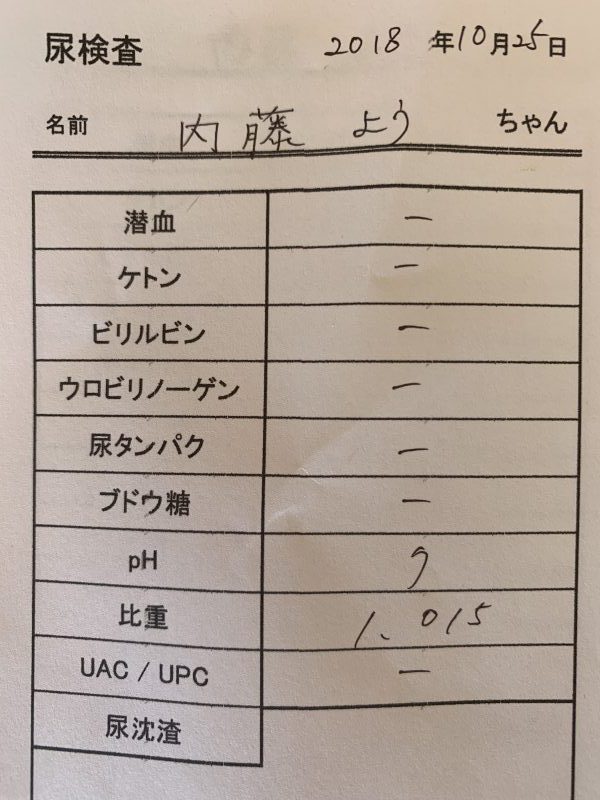 尿検査 2018 年10月25日
名前 内藤 よう ちゃん
潜血 －
ケトン －
ビリルビン －
ウロビリノーゲン －
尿タンパク －
ブドウ糖 －
pH
比重 1.015
UAC / UPC －
尿沈渣